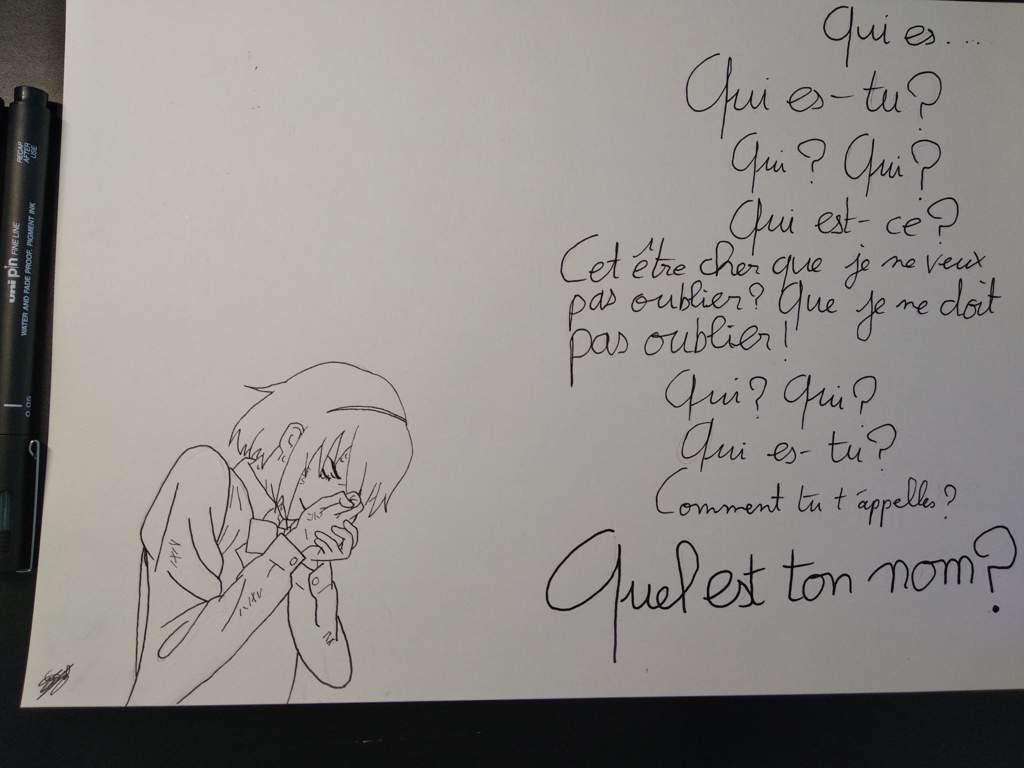 Qui es...
Qui es-tu?
Qui? Qui?
Qui est-ce?
Cet être cher que je ne veux
pas oublier? Que je ne doit
pas oublier!
Qui? Qui?
Qui es-tu?
Comment tu t'appelles?
Quel est ton nom?
uni pin FINE LINE
WATER AND FADE PROOF, PIGMENT INK
RECAP
AFTER
USE
0.05